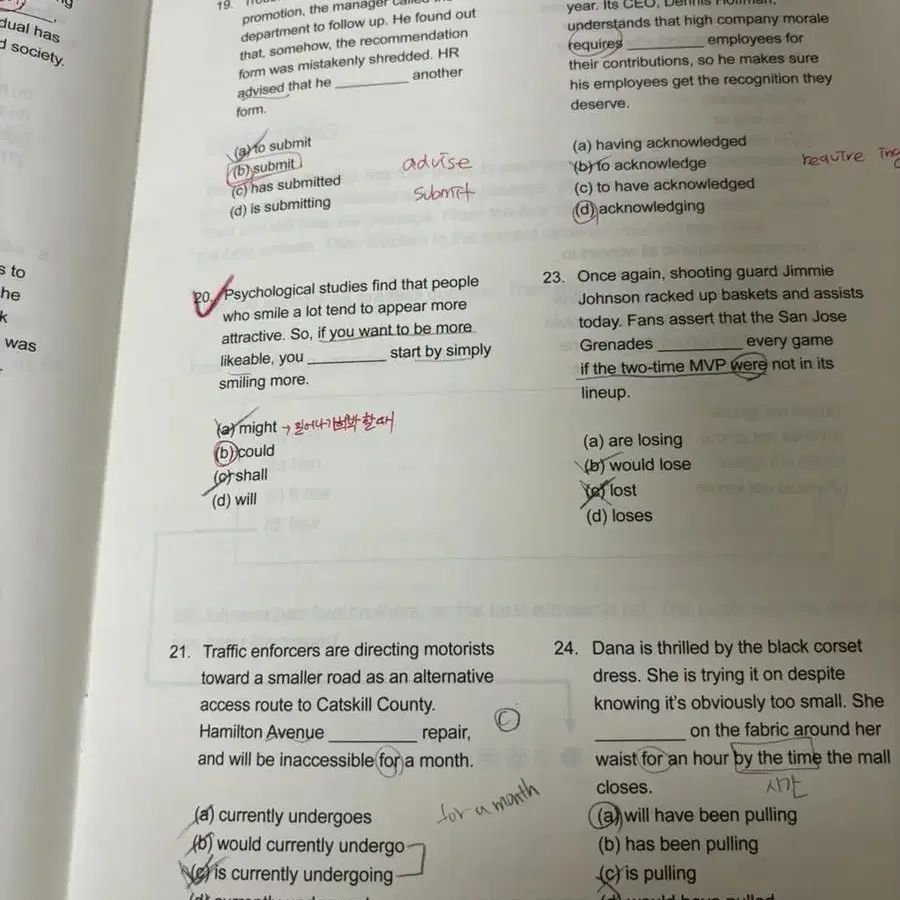 dual has
d society.
s to
he
k
was
19.
promotion, the manager called the
department to follow up. He found out
that, somehow, the recommendation
form was mistakenly shredded. HR
advised that he ________ another
form.
(a) to submit
(b) submit
(c) has submitted
(d) is submitting
advise
submit
20. Psychological studies find that people
who smile a lot tend to appear more
attractive. So, if you want to be more
likeable, you ________ start by simply
smiling more.
(a) might → 일어나기 희박 할 때
(b) could
(c) shall
(d) will
21. Traffic enforcers are directing motorists
toward a smaller road as an alternative
access route to Catskill County.
Hamilton Avenue ________ repair,
and will be inaccessible for a month.
C
for a month
(a) currently undergoes
(b) would currently undergo
(c) is currently undergoing
year. Its CEO, Dennis
understands that high company morale
requires ________ employees for
their contributions, so he makes sure
his employees get the recognition they
deserve.
(a) having acknowledged
(b) to acknowledge
(c) to have acknowledged
(d) acknowledging
require ing
23. Once again, shooting guard Jimmie
Johnson racked up baskets and assists
today. Fans assert that the San Jose
Grenades ________ every game
if the two-time MVP were not in its
lineup.
(a) are losing
(b) would lose
(c) lost
(d) loses
24. Dana is thrilled by the black corset
dress. She is trying it on despite
knowing it's obviously too small. She
________ on the fabric around her
waist for an hour by the time the mall
closes.
시간
(a) will have been pulling
(b) has been pulling
(c) is pulling